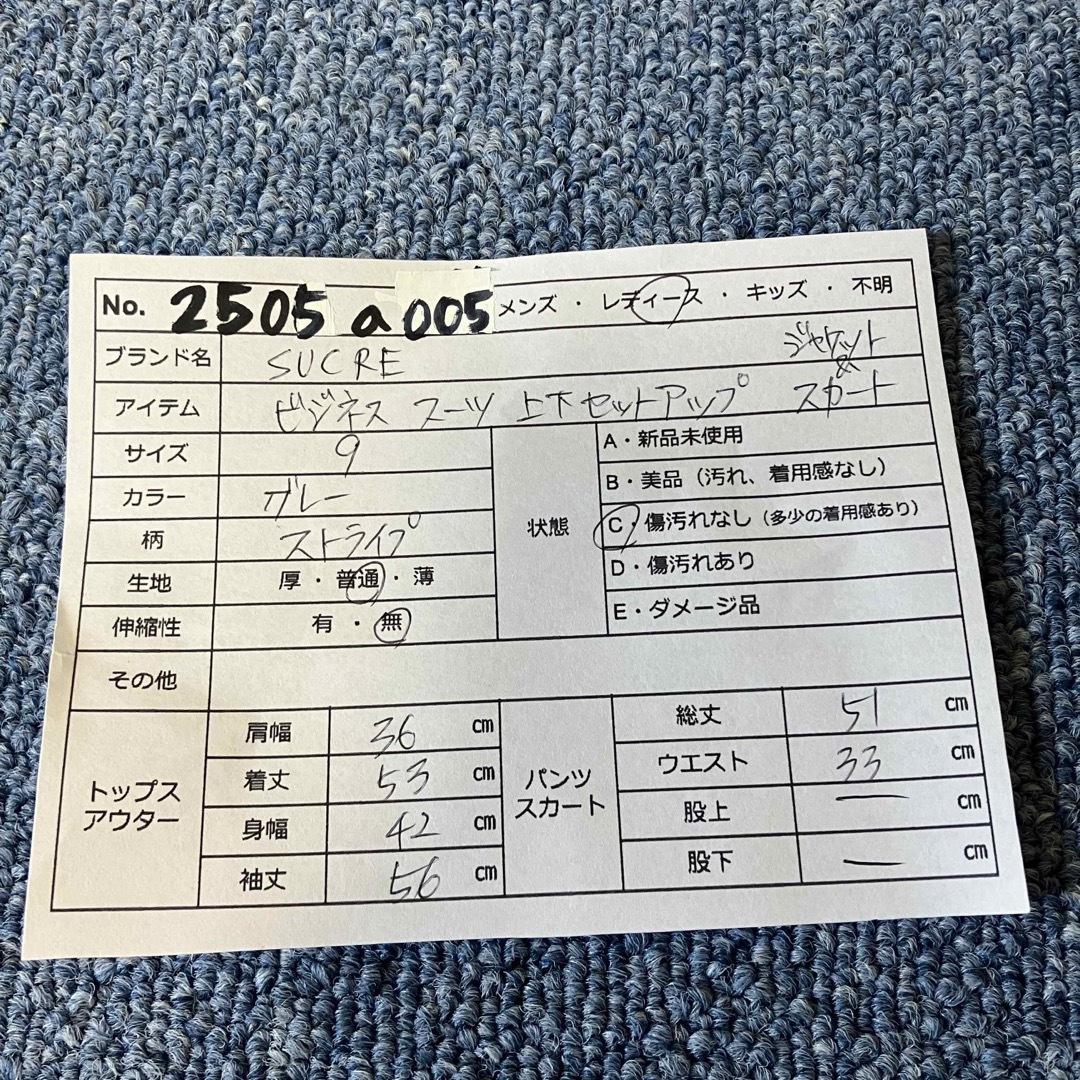 No. 2505 a 005 メンズ ・ レディース ・ キッズ ・ 不明
ブランド名 SUCRE
アイテム ビジネス スーツ 上下セットアップ ジャケット & スカート
サイズ 9
カラー グレー
柄 ストライプ
生地 厚 ・ 普通 ・ 薄
伸縮性 有 ・ 無
状態
A・新品未使用
B・美品（汚れ、着用感なし）
C・傷汚れなし（多少の着用感あり）
D・傷汚れあり
E・ダメージ品
その他
トップス
アウター
肩幅 36 cm
着丈 53 cm
身幅 42 cm
袖丈 56 cm
パンツ
スカート
総丈 51 cm
ウエスト 33 cm
股上 ー cm
股下 ー cm